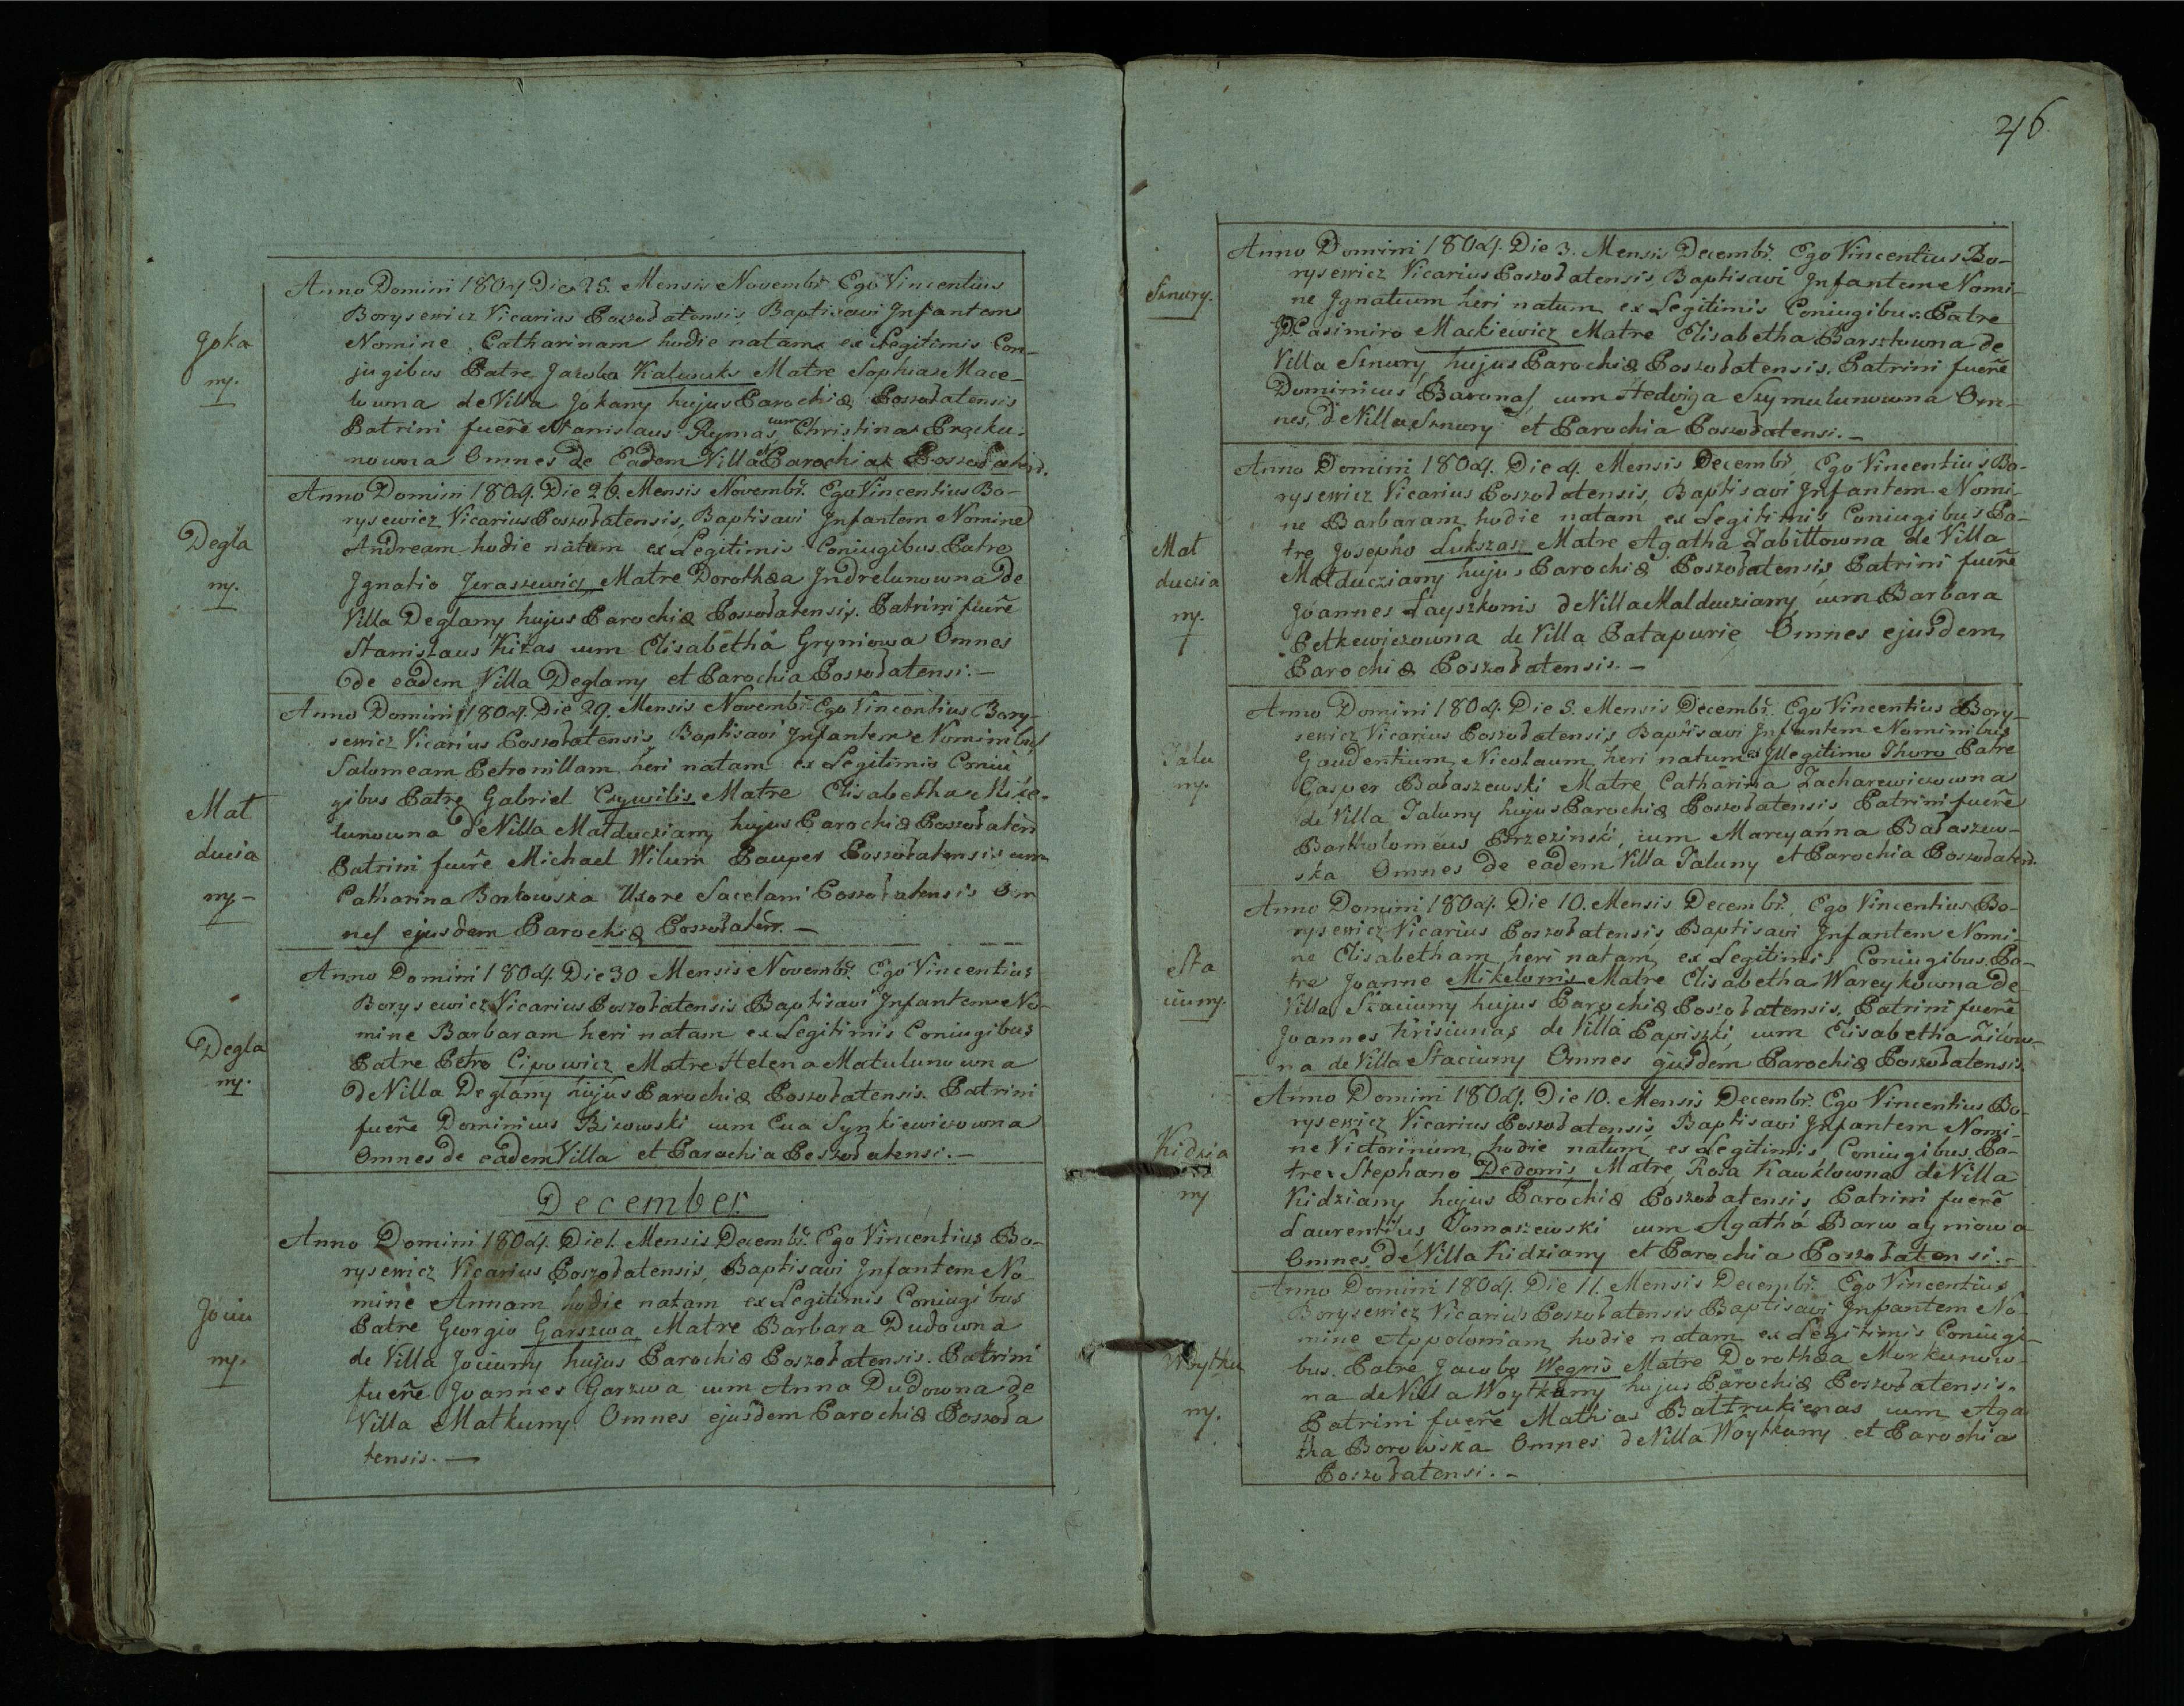 Joka
ny.
Anno Domini 1804 Die 25. Mensis Novembr̃ Ego Vincentius
Borysewicz Vicarius Poszołatensis Baptisavi Infantem
Nomine Catharinam hodie natam ex Legitimis Con-
jugibus Patre Jacoba Matre Sophia Mace-
lowna de Villa Jokany hujus Parochiæ Poszołatensis
Patrini fuer̃e Stanislaus Rymas cum Christina
nowna Omnes de Eadem Villa et Parochia Poszołaten.
Degla
ny.
Anno Domini 1804. Die 26. Mensis Novembr̃. Ego Vincentius Bo-
rysewicz Vicarius Poszołatensis, Baptisavi Infantem Nomine
Andream hodie natum ex Legitimis Coniugibus Patre
Ignatio Jeraszewicz Matre Dorothæa Indrelunowna de
Villa Deglany hujus Parochiæ Poszołatensis. Patrini fuer̃e
Stanislaus Kiżas cum Elisabetha Gryniowa Omnes
de eadem Villa Deglany et Parochia Poszołatensi.—
Mat
ducia
ny-
Anno Domini 1804. Die 29. Mensis Novembr̃ Ego Vincentius Bory-
sewicz Vicarius Poszołatensis Baptisavi Infantem Nominibus
Salomeam Petronillam heri natam ex Legitimis Coniu
gibus Patre Gabriel Matre Elisabetha Miże-
lunowna de Villa Malducziany hujus Parochiæ Poszołaten
Patrini fuer̃e Michael Wilum Pauper Poszołatensis cum
Catharina Uxore Sacelani Poszołatensis Om
nes ejusdem Parochiæ Poszołaten.—
Degla
ny.
Anno Domini 1804. Die 30 Mensis Novembr̃. Ego Vincentius
Borysewicz Vicarius Poszołatensis Baptisavi Infantem No-
mine Barbaram heri natam ex Legitimis Coniugibus
Patre Petro Cipowicz Matre Helena Matulunowna
de Villa Deglany hujus Parochiæ Poszołatensis. Patrini
fuer̃e Dominicus cum Eva Synkiewiczowna
Omnes de eadem Villa et Parochia Poszołatensi.—
December.
Jociu
ny.
Anno Domini 1804. Die 1. Mensis Decembr̃. Ego Vincentius Bo-
rysewicz Vicarius Poszołatensis, Baptisavi Infantem No
mine Annam hodie natam ex Legitimis Coniugibus
Patre Georgio Garszwa Matre Barbara Dudowna
de Villa Jociuny hujus Parochiæ Poszołatensis. Patrini
fuer̃e Joannes Garzwa cum Anna Dudowna de
Villa Matkuny Omnes ejusdem Parochiæ Poszoła
tensis.—
246
Sznury.
Anno Domini 1804. Die 3. Mensis Decembr̃. Ego Vincentius Bo-
rysewicz Vicarius Poszołatensis Baptisavi Infantem Nomi-
ne Ignatium heri natum ex Legitimis Coniugibus Patre
Casimiro Mackiewicz Matre Elisabetha Barsztowna de
Villa Sznury hujus Parochiæ Poszołatensis. Patrini fuer̃e
Dominicus Baronas cum Hedviga Szymulunowna Om-
nes de Villa Sznury et Parochia Poszołatensi.—
Mat
duczia
ny.
Anno Domini 1804. Die 4. Mensis Decembr̃. Ego Vincentius Bo-
rysewicz Vicarius Poszołatensis, Baptisavi Infantem Nomi-
ne Barbaram hodie natam ex Legitimis Coniugibus Pa-
tre Josepho Lukszasz Matre Agatha Zabiłłowna de Villa
Malducziany hujus Parochiæ Poszołatensis Patrini fuer̃e
Joannes Layszkonis de Villa Malducziany cum Barbara
Petkewiczowna de Villa Patapurie Omnes ejusdem
Parochiæ Poszołatensis.—
Jalu
ny.
Anno Domini 1804. Die 5. Mensis Decembr̃. Ego Vincentius Bory-
sewicz Vicarius Poszołatensis Baptisavi Infantem Nominibus
Gaudentium Nicolaum heri natum ex Illegitimo Thoro Patre
Casper Bałaszewski Matre Catharina Zacharewiczowna
de Villa Jaluny hujus Parochiæ Poszołatensis Patrini fuer̃e
Bartholomeus Brzezinski, cum Marcyanna Bałaszew-
ska Omnes de eadem Villa Jaluny et Parochia Poszołaten.
Sta
ciuny.
Anno Domini 1804. Die 10. Mensis Decembr̃. Ego Vincentius Bo-
rysewicz Vicarius Poszołatensis, Baptisavi Infantem Nomi-
ne Elisabetham heri natam ex Legitimis Coniugibus Pa-
tre Joanne Mikelonis Matre Elisabetha Wareykowna de
Villa Staciuny hujus Parochiæ Poszołatensis. Patrini fuer̃e
Joannes Krisiunas de Villa Papiszki cum Elisabetha
na de Villa Staciuny Omnes ejusdem Parochiæ Poszołatensis.
Kidzia
ny
Anno Domini 1804. Die 10. Mensis Decembr̃. Ego Vincentius Bo-
rysewicz Vicarius Poszołatensis Baptisavi Infantem Nomi-
ne Victorinum, hodie natum ex Legitimis Coniugibus Pa-
tre Stephano Dedonis Matre Rosa Kawklowna de Villa
Kidziany hujus Parochiæ Poszołatensis Patrini fuer̃e
Laurentius Tomaszewski cum Agatha
Omnes de Villa Kidziany et Parochia Poszołatensi.—
Woytku
ny.
Anno Domini 1804. Die 11. Mensis Decembr̃. Ego Vincentius
Borysewicz Vicarius Poszołatensis Baptisavi Infantem No-
mine Appoloniam hodie natam ex Legitimis Coniugi-
bus. Patre Jacobo Wegris Matre Dorothæa Morkunow-
na de Villa Woytkuny hujus Parochiæ Poszołatensis.
Patrini fuer̃e Mathias Bałtrukienas cum Aga
tha Borowska Omnes de Villa Woytkuny et Parochia
Poszołatensi.—